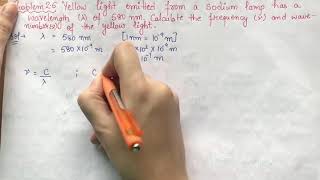 Problem 2.5 Yellow light emitted from a Sodium lamp has a
wavelength (λ) of 580 nm. Calculate the frequency (ν) and wave-
number of the yellow light.
λ = 580 nm [1nm = 10⁻⁹ m]
= 580 × 10⁻⁹ m
10⁻⁷ m
ν = C/λ ; C